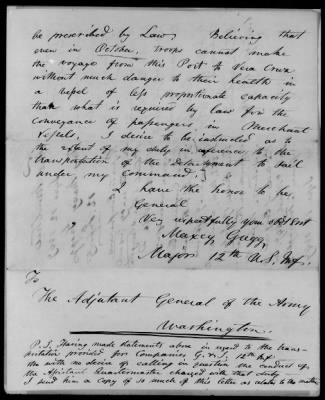 be prescribed by Law. Believing that
even in October, troops cannot make
the voyage from this Port to Vera Cruz
without much danger to their health in
a vessel of less proportionate capacity
than what is required by law for the
conveyance of passengers in Merchant
Vessels, I desire to be instructed as to
the extent of my duty in reference to the
transportation of the detachment to sail
under my command.
I have the honor to be
General
Very respectfully your obt Svt
Maxcy Gregg,
Major 12th U.S. Inf.
To
The Adjutant General of the Army
Washington.
P.S. Having made statements above in regard to the trans-
portation provided for Companies G. & I. 12th Inf
tho with no desire of calling in question the conduct of
the Assistant Quartermaster charged with that duty
I send him a Copy of so much of this letter as relates to the matter